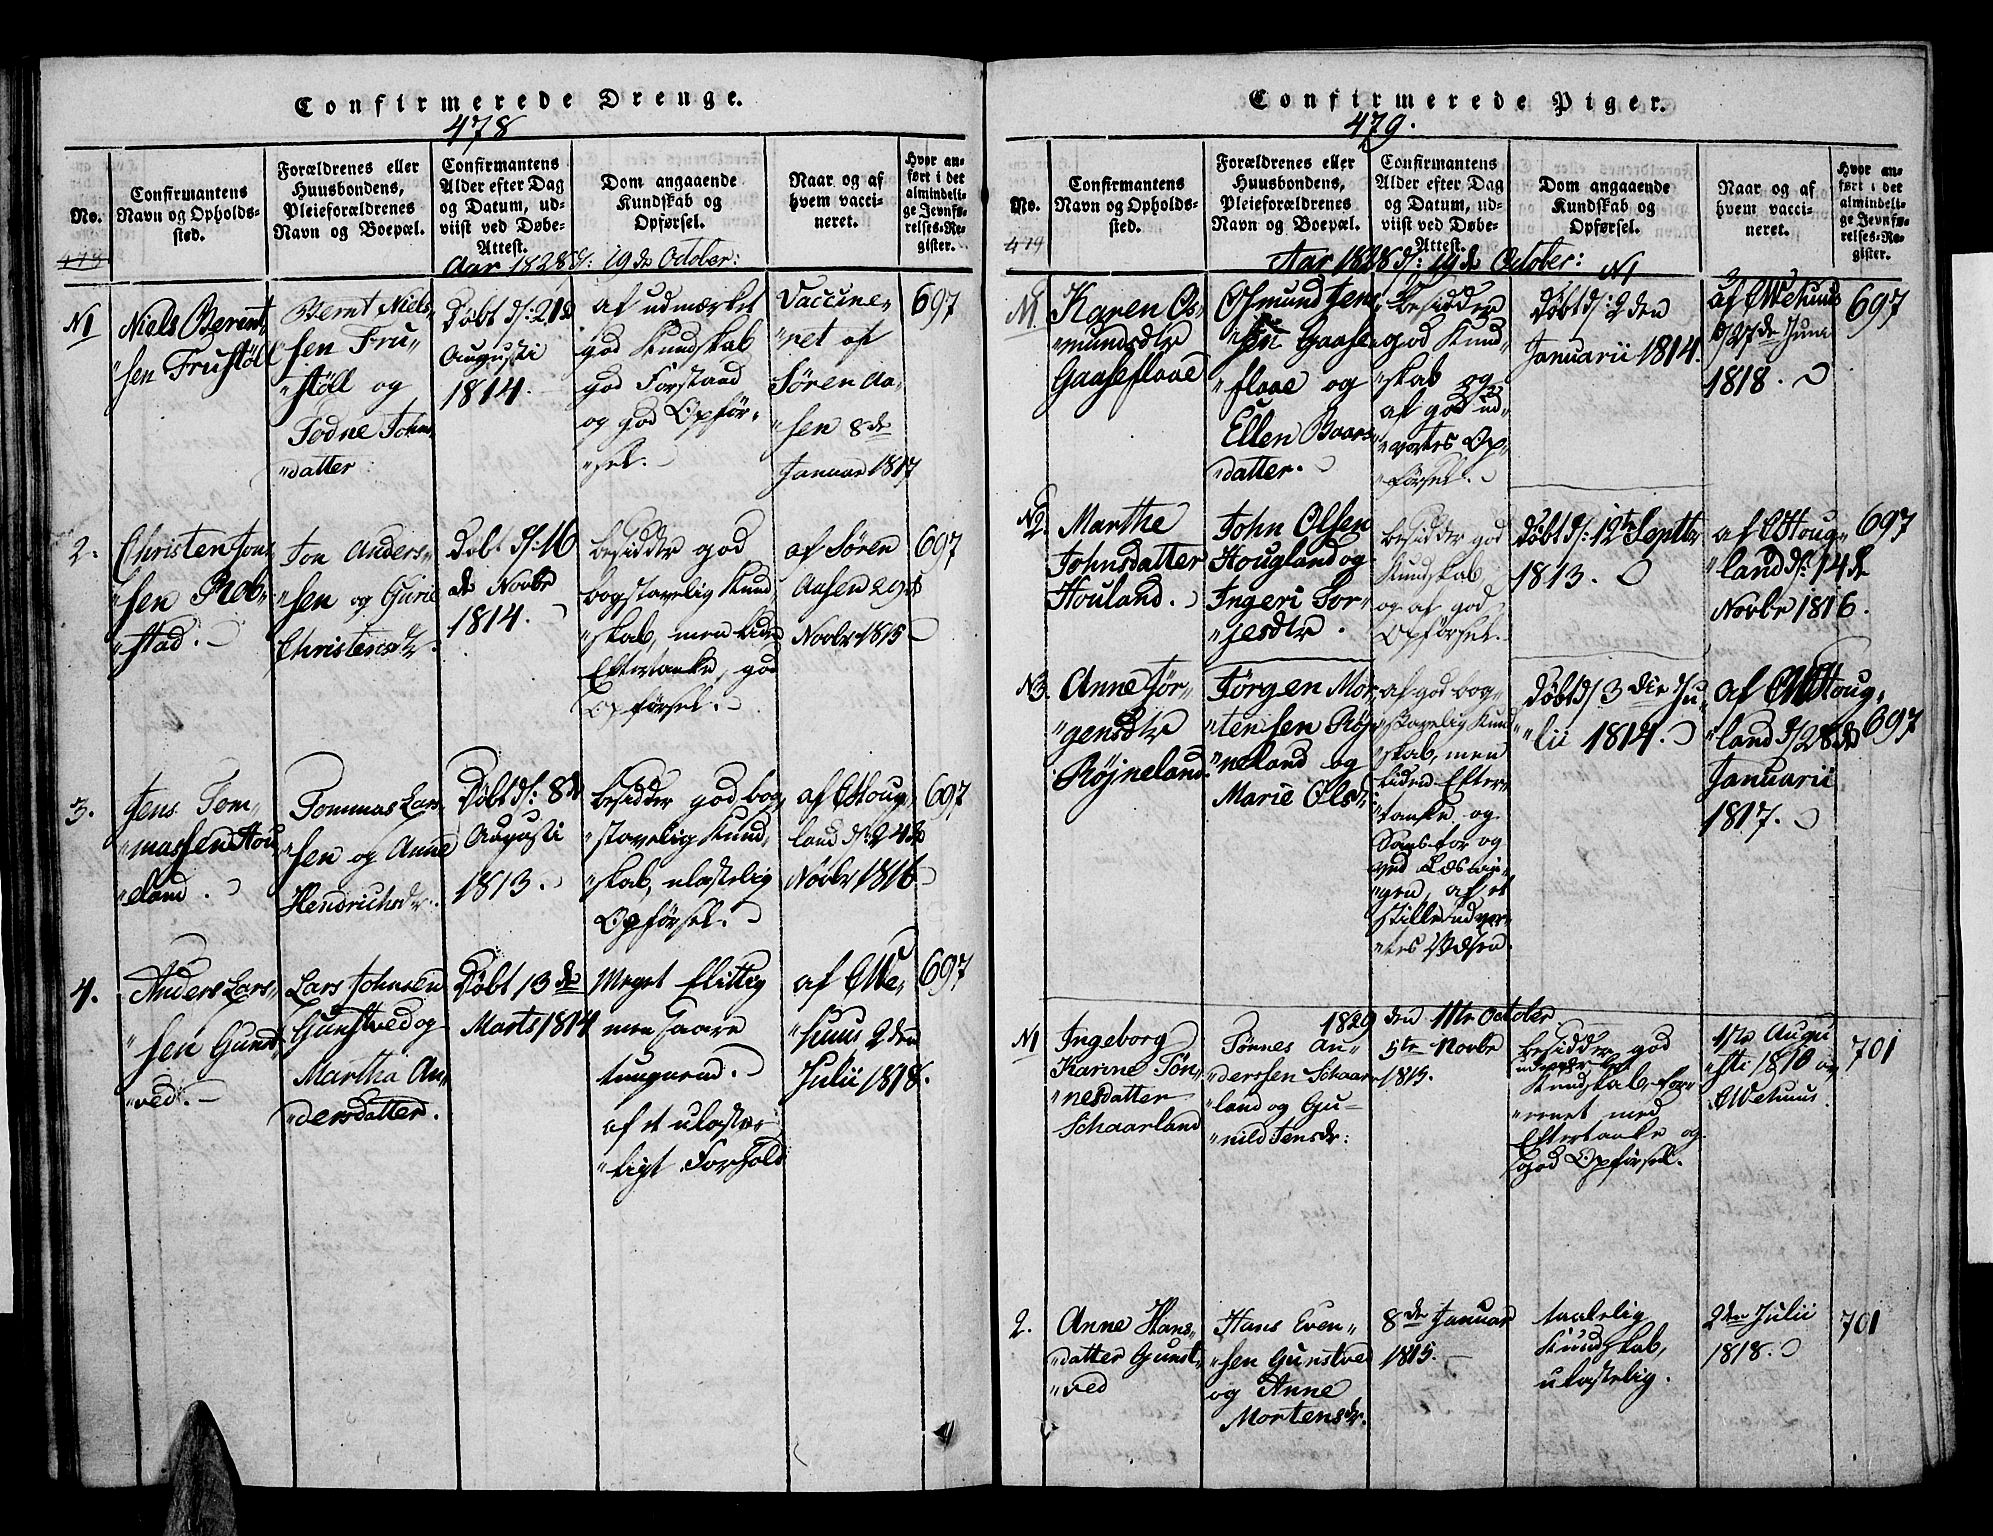 Confirmerede Drenge.
478
No.
Confirmantens
Navn og Opholds-
sted.
Forældrenes eller
Huusbondens,
Pleieforældrenes
Navn og Boepæl.
Confirmantens
Alder efter Dag
og Datum, ud-
viist ved Døbe-
Attest.
Dom angaaende
Kundskab og
Opførsel.
Naar og af
hvem vacci-
neret.
Hvor an-
ført i det
almindeli-
ge Jevnfø-
relses-Re-
gister.
478
Aar 1828 d: 19de October:
N1
Niels Berent
"sen Frustöll
Bernt Niels-
"sen Fru-
"stöll og
Todne Johns
"datter
Döbt d: 21de
Augusti
1814.
af udmærket
god Kundskab
god Forstand
og god Opför-
"sel.
Vaccine-
"ret af
Sören Aa-
"sen 8de
Januar 1817
697
2.
Christen Jons
"sen
"stad.
Jon Anders-
"sen og Gurie
Christensdr.
Döbt d: 16
de Novbr
1814.
besidder god
bogstavelig Kund
"skab, men liden
Eftertanke, god
Opförsel.
af Sören
Aasen 29de
Novbr 1815
697
3.
Jens Tom-
"massen Hou
"eland.
Tommas Lar-
"sen og Anne
Hendrichsdr.
Döbt d: 8de
Augusti
1813.
besidder god bog
"stavelig Kund-
"skab, ulastelig
Opförsel.
af C Houg-
land d: 24de
Novbr 1816
697
4.
Anders Lars-
"sen Gunst
"ved.
Lars Johnsen
Gunstved og
Martha An-
"dersdatter.
Döbt 13de
Marts 1814
Meget flittig
men saare
tungnem.
af et ulaste-
"ligt Forhold
af C We-
"huus 2den
Julii 1818.
697
Confirmerede Piger.
479.
No.
Confirmantens
Navn og Opholds-
sted.
Forældrenes eller
Huusbondens,
Pleieforældrenes
Navn og Boepæl.
Confirmantens
Alder efter Dag
og Datum, ud-
viist ved Døbe-
Attest.
Dom angaaende
Kundskab og
Opførsel.
Naar og af
hvem vacci-
neret.
Hvor an-
ført i det
almindeli-
ge Jevnfø-
relses-Re-
gister.
479
Aar 1828 d: 19de October:
N1
N1
Karen Os-
"mundsdtr
Gaaseflaae
Osmund Jens
"sen Gaase
"flaae og
Ellen Baars
"datter.
besidder
god Kund-
"skab og
af god ud-
"vortes Op-
"försel.
Döbt d: 2den
Januarii 1814.
af C Wehuus
d 27de Juni
1818.
697
N2.
Marthe
Johnsdatter
Houland.
John Olsen
Hougland og
Ingeri Tor-
"jesdtr.
besidder god
Kundskab
og af god
Opförsel.
Döbt d: 12te Septbr
1813.
af C Houg-
"land d: 14de
Novbr 1816.
697
N3.
Anne Jör-
"gensdtr
Röjneland.
Jörgen Mor-
"tensen Röj-
"neland og
Marie Olsdr
af god bog-
"stavelig Kund
"skab, men
liden Efter-
"tanke og
Sans for og
ved Læsnin-
"gen, af et
stille udvor-
"tes Væsen.
Döbt d: 3die Ju-
"lii 1814.
af C Houg-
"land d: 28de
Januarii
1817.
697
1829 den 11te October
N1
Ingeborg
Karine Tön-
"nesdatter
Schaarland
Tönnes An-
"derssen Schaar
"land og Gu-
"nild Jensdr:
5te Novbr
1815.
besidder god
Kundskab, for-
"eenet med
Eftertanke og
god Opförsel.
1ste Augu
"sti 1818 af
C Wehuus.
701
2.
Anne Hans-
"datter Gunst-
"ved
Hans Even-
"sen Gunstved
og Anne
Mortensdr.
8de Januar
1815.
taalelig
Kundskab,
ulastelig.
2den Julii
1818.
701